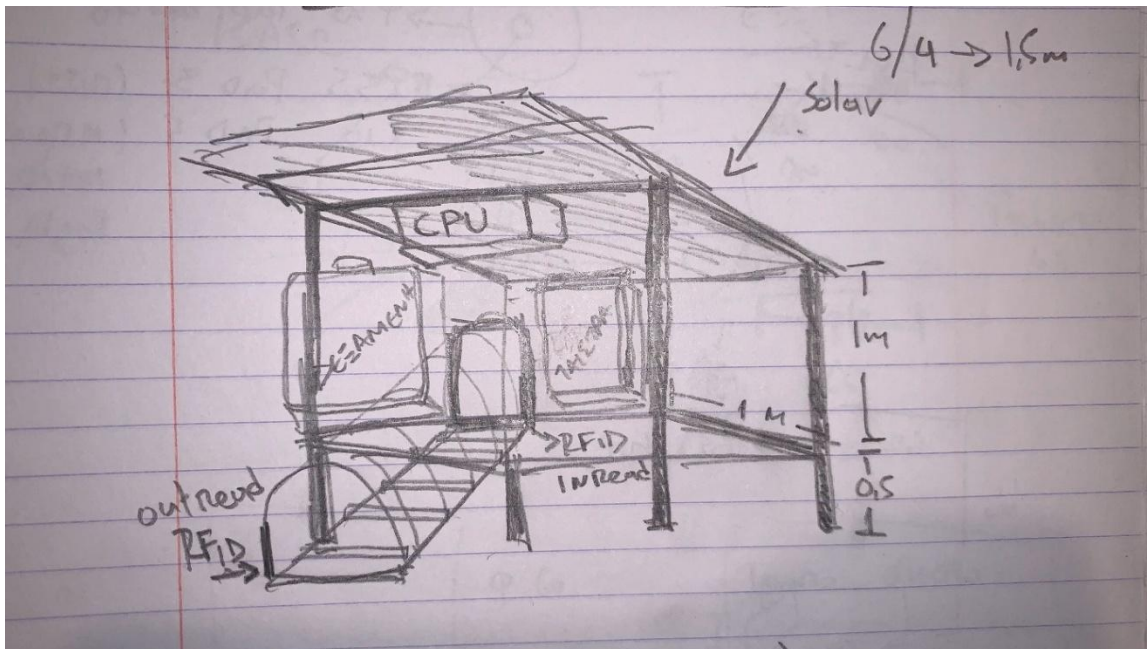 6/4 → 1,5m
Solar
CPU
1m
1 M
RFID
INRead
0,5
outRead
RFID